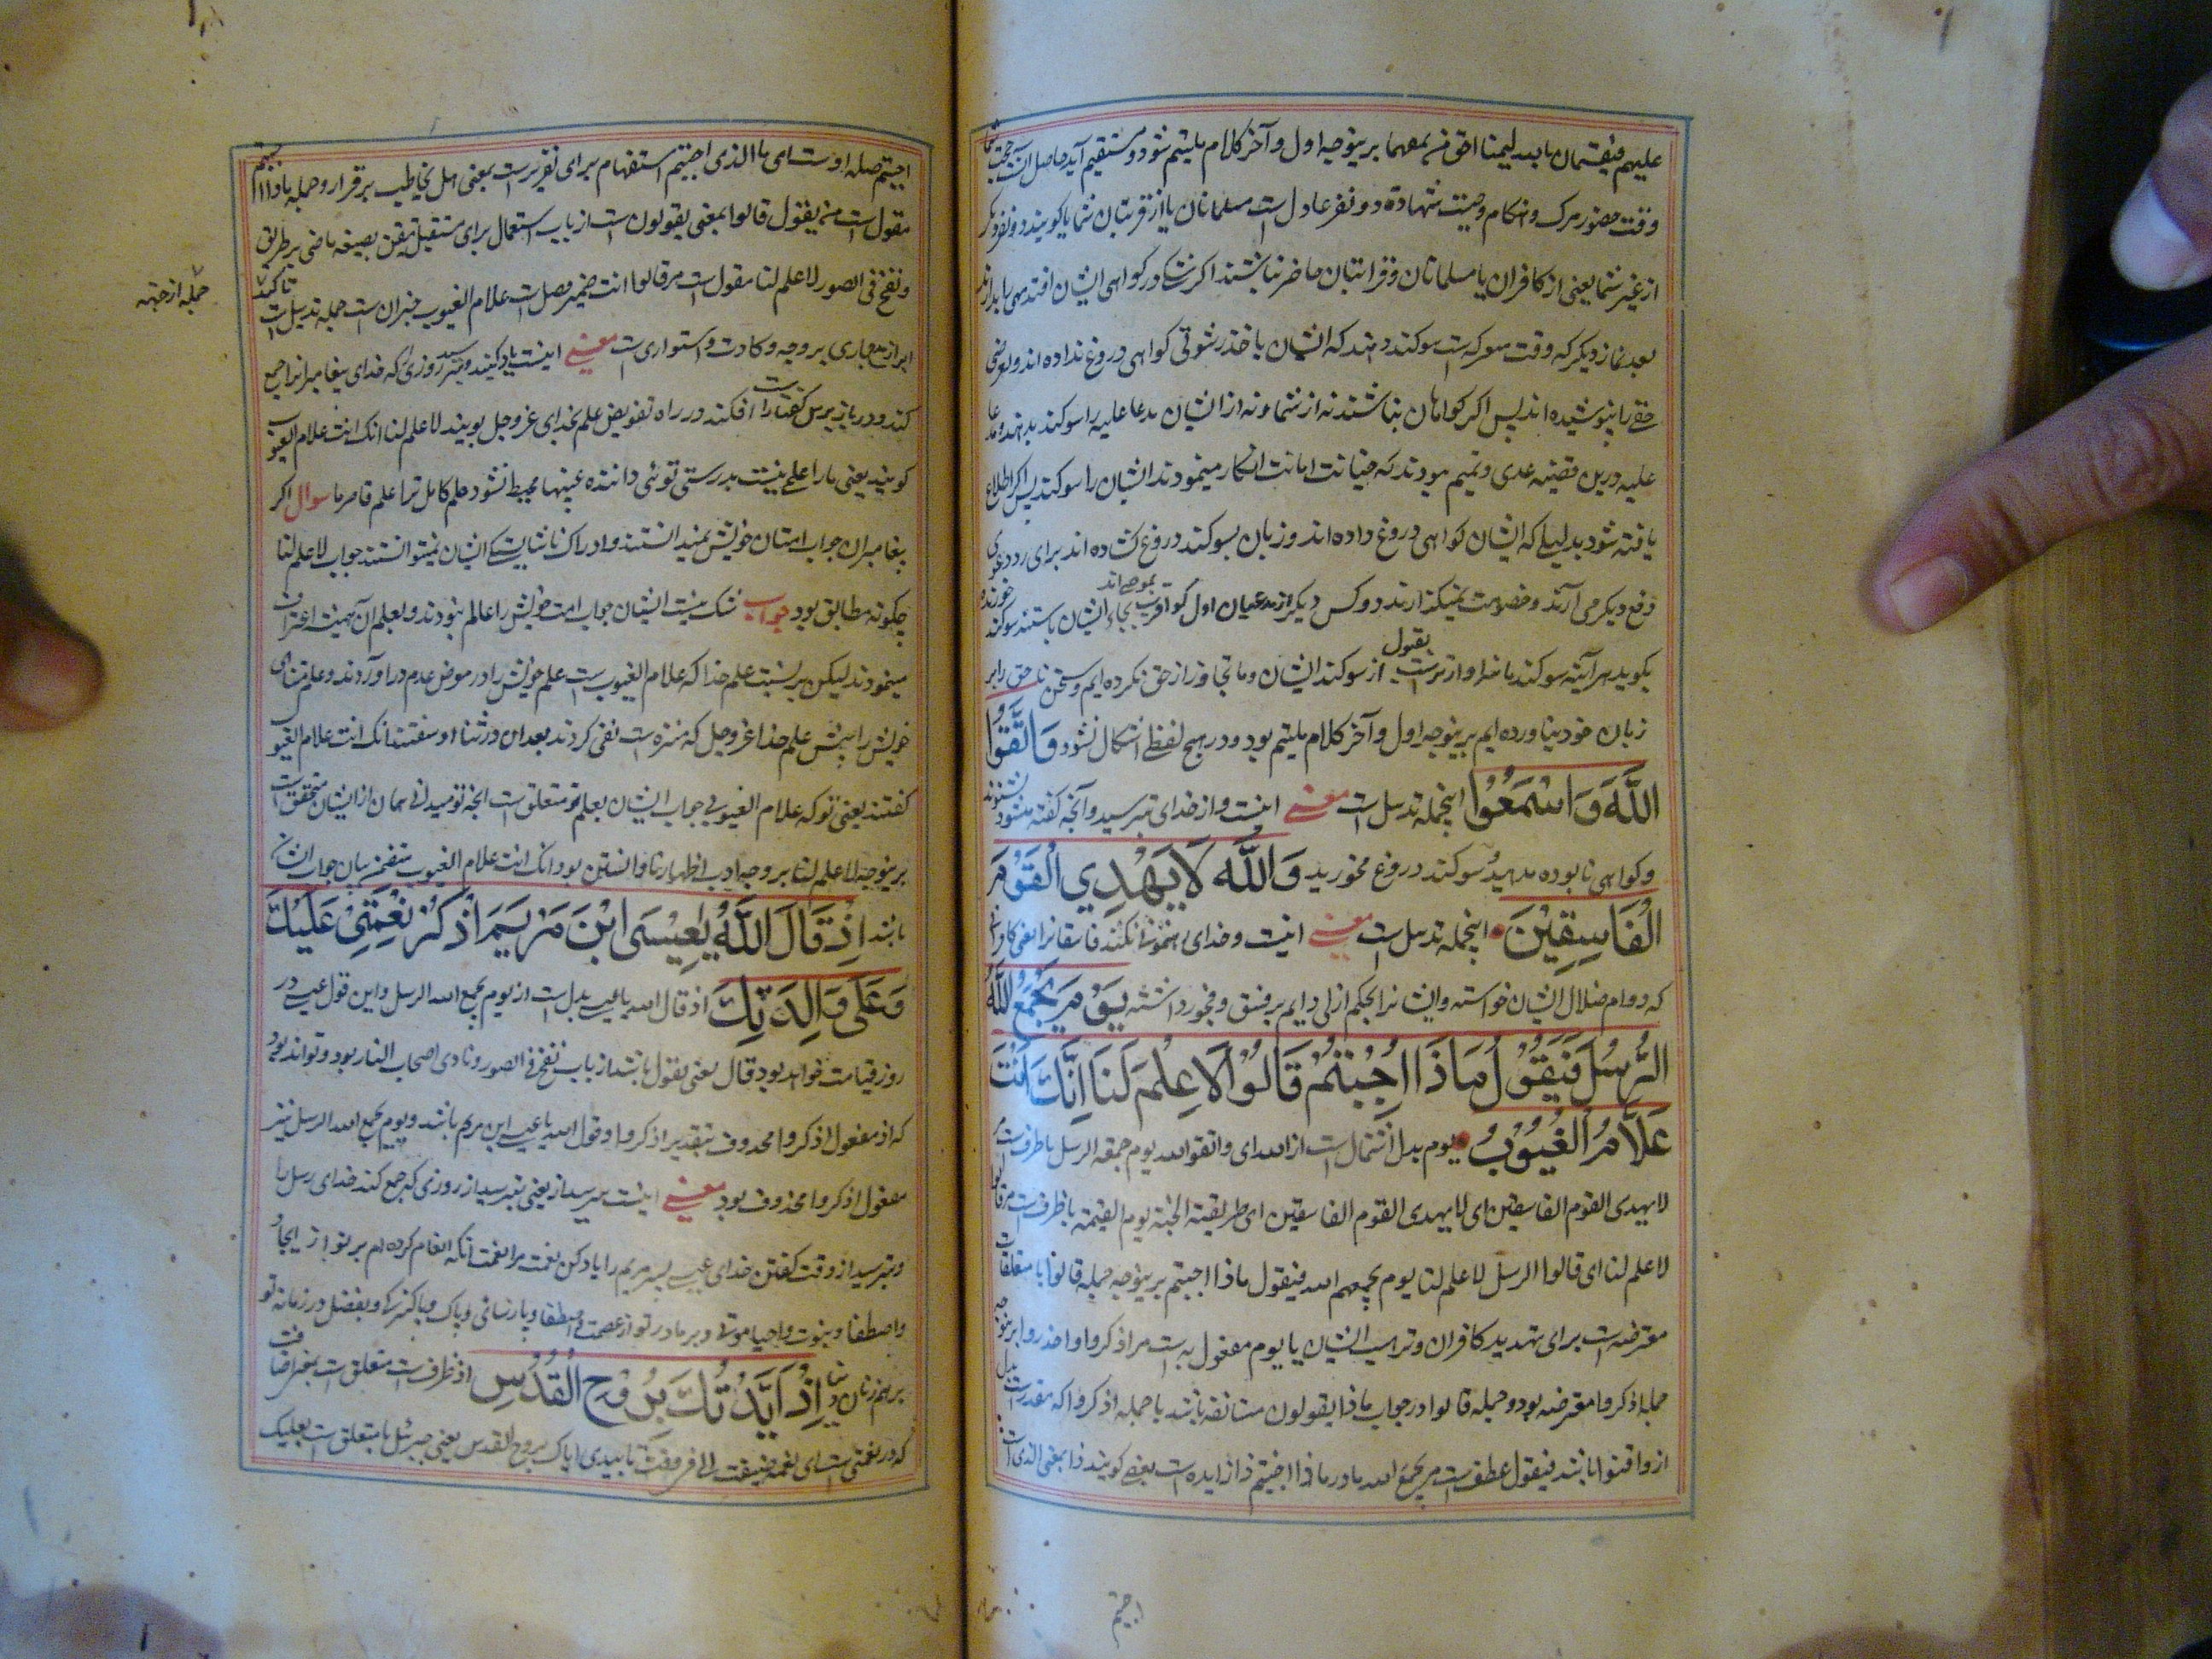 علیهم فیقسمان بالله لشهادتنا احق من شهادتهما برینوجه اول و آخر کلام ملیتم شود و مستقیم آید حاصل
وقت حضور مرک و هنکام وصیت شهادة دو نفر عادل است مسلمانان یا از قریبان شما یا کویند دو نفر دیکر
از غیر شما یعنی از کافران یا مسلمانان و قرابتیان حاضر نباشند اکر شک در کواهی ایشان افتد می باید
بعد نماز دیکر که وقت معرکه است سوکند دهند که ایشان باخذ رشوتی کواهی دروغ نداده اند و
حق را نپوشیده اند پس اکر کواهان نباشند نه از شما و نه از ایشان مدعا علیه را سوکند بدهند
علیه درین قضیه عدی و تمیم بودند که خیانت امانت انکار مینمودند ایشان را سوکند پس اکر اطلاع
یافته شود بدلیلی که ایشان کواهی دروغ داده اند و زبان بسوکند دروغ کشاده اند برای رد دعوی
دفع دیکر می آرند و خصومت نمیکذارند دو کس دیکر از مدعیان اول بجاء ایشان باستند سوکند
بکوید هر آینه سوکند ما سزاوارترست بقول از سوکند ایشان و ما تجاوز از حق نکرده ایم و سخن ناحق را بر
زبان خود نیاورده ایم برینوجه اول و آخر کلام ملیتم بود و در هیچ لفظی اشکال نشود وَاتَّقُوا
اللَّهَ وَاسْمَعُوْا اینجمله تدییل است معنی اینست و از خدای بترسید و آنچه کفته میشود بشنوید
و کواهی نابوده مدهید و سوکند دروغ مخورید وَاللَّهُ لَا يَهْدِي الْقَوْمَ
الْفَاسِقِيْنَ اینجمله تدییل است معنی اینست و خدای رهنمونی نکند فاسقانرا یعنی کافرانی
که دوام ضلال ایشان خواسته و ایشانرا بحکم ازلی دایم بر فسق و فجور داشته يَوْمَ يَجْمَعُ اللَّهُ
الرُّسُلَ فَيَقُوْلُ مَاذَا اُجِبْتُمْ قَالُوْا لَا عِلْمَ لَنَا اِنَّكَ اَنْتَ
عَلَّامُ الْغُيُوْبِ یوم بدل اشتمال است از الله ای واتقوا الله یوم جمعه الرسل یا ظرف است
لا یهدی القوم الفاسقین ای لا یهدی القوم الفاسقین ای طریقة الجنة یوم القیمة یا ظرف است مر قالوا
لا علم لنا ای قالوا الرسل لا علم لنا یوم یجمعهم الله فیقول ماذا اجبتم برینوجه جمله قالوا با متعلقات
معترضه است برای تهدید کافران و ترهیب ایشان یا یوم مفعول به است مر اذکروا و احذروا برینوجه
جمله اذکروا معترضه بود و جمله قالوا در جواب ماذا یقولون مستانفه باشد یا جمله اذکروا که مقدرست بدل
از واتقوا باشد فیقول عطف است بر یجمع الله ما در ماذا اجبتم ذا زایده است بعضی کویند ذا بمعنی الذی است
اجبتم
اجبتم صله اوست ای ما الذی اجبتم استفهام برای تقریرست بمعنی اهل
مقول است من یقول قالوا بمعنی یقولون است از باب استعمال برای مستقبل متیقن بصیغه ماضی بر طریق
ونفخ فی الصور لا علم لنا مقول است مر قالوا انت ضمیر فصل است علام الغیوب خبر ان است جمله تدییل است
جمله از جهة
معنی اینست یاد کنید و بترسید روزی که خدای پیغامبرانرا جمع
کند و در راه تفویض علم بخدای عز و جل بویند لا علم لنا انک انت علام الغیوب
کویند یعنی ما را علمی نیست بدرستی توئی داننده غیبها محیط نشود علم کامل ترا علم قاصر ما سوال اکر
پیغامبران جواب امتان خویش نمیدانستند و ادراک ایشان نمیتوانستند جواب لا علم لنا
چکونه مطابق بود جواب شک نیست ایشان جواب امت خویش را عالم بودند و بعلم آن اعتراف
مینمودند لیکن بر نسبت علم خدا که علام الغیوب است علم خویش را در معرض عدم در آوردند و علم متناهی
خویش را پیش علم خدا عز و جل که منزه است نفی کردند بعد ان در ثنا او سفتند انک انت علام الغیوب
کفتند یعنی توکه علام الغیوبی جواب ایشان بعلم تو متعلق است انچه تو میدانی همان از ایشان متحقق است
برینوجه لا علم لنا بر وجه ادب اظهار نادانستن بود انک انت علام الغیوب متضمن بیان جواب ایشان
باشد اِذْ قَالَ اللَّهُ يٰعِيْسَى ابْنَ مَرْيَمَ اذْكُرْ نِعْمَتِيْ عَلَيْكَ
وَعَلٰى وَالِدَتِكَ اذ قال الله یا عیسی بدل است از یوم یجمع الله الرسل و این قول عیسی در
روز قیامت خواهد بود قال یعنی یقول باشد از باب نفخ فی الصور و نادی اصحاب النار بود و تواند بود
که اذ مفعول اذکروا محذوف بتقدیر اذکروا وقول الله یا عیسی ابن مریم باشد و یوم یجمع الله الرسل نیز
مفعول اذکروا محذوف بود معنی اینست بترسید از یعنی بترسید از روزی که جمع کند خدای رسل را
و بترسید از وقت کفتن خدای عیسی پسر مریم را یاد کن نعمت مرا نعمت آنکه انعام کرده ام بر تو از ایجاد
واصطفا و نبوت و احیا موتی و بر مادر تو از عصمت و اصطفا و پارسائی و پاک و پاکیزکی و بفضل در زمانه تو
بر هم زنان دنیا اِذْ اَيَّدْتُّكَ بِرُوْحِ الْقُدُسِ اذ ظرف است متعلق است بمعنی اضافت
که در نعمتی است ای نعمة اضیفت الی فی وقت تاییدی ایاک بروح القدس یعنی جبرئیل یا متعلق است بعلیک